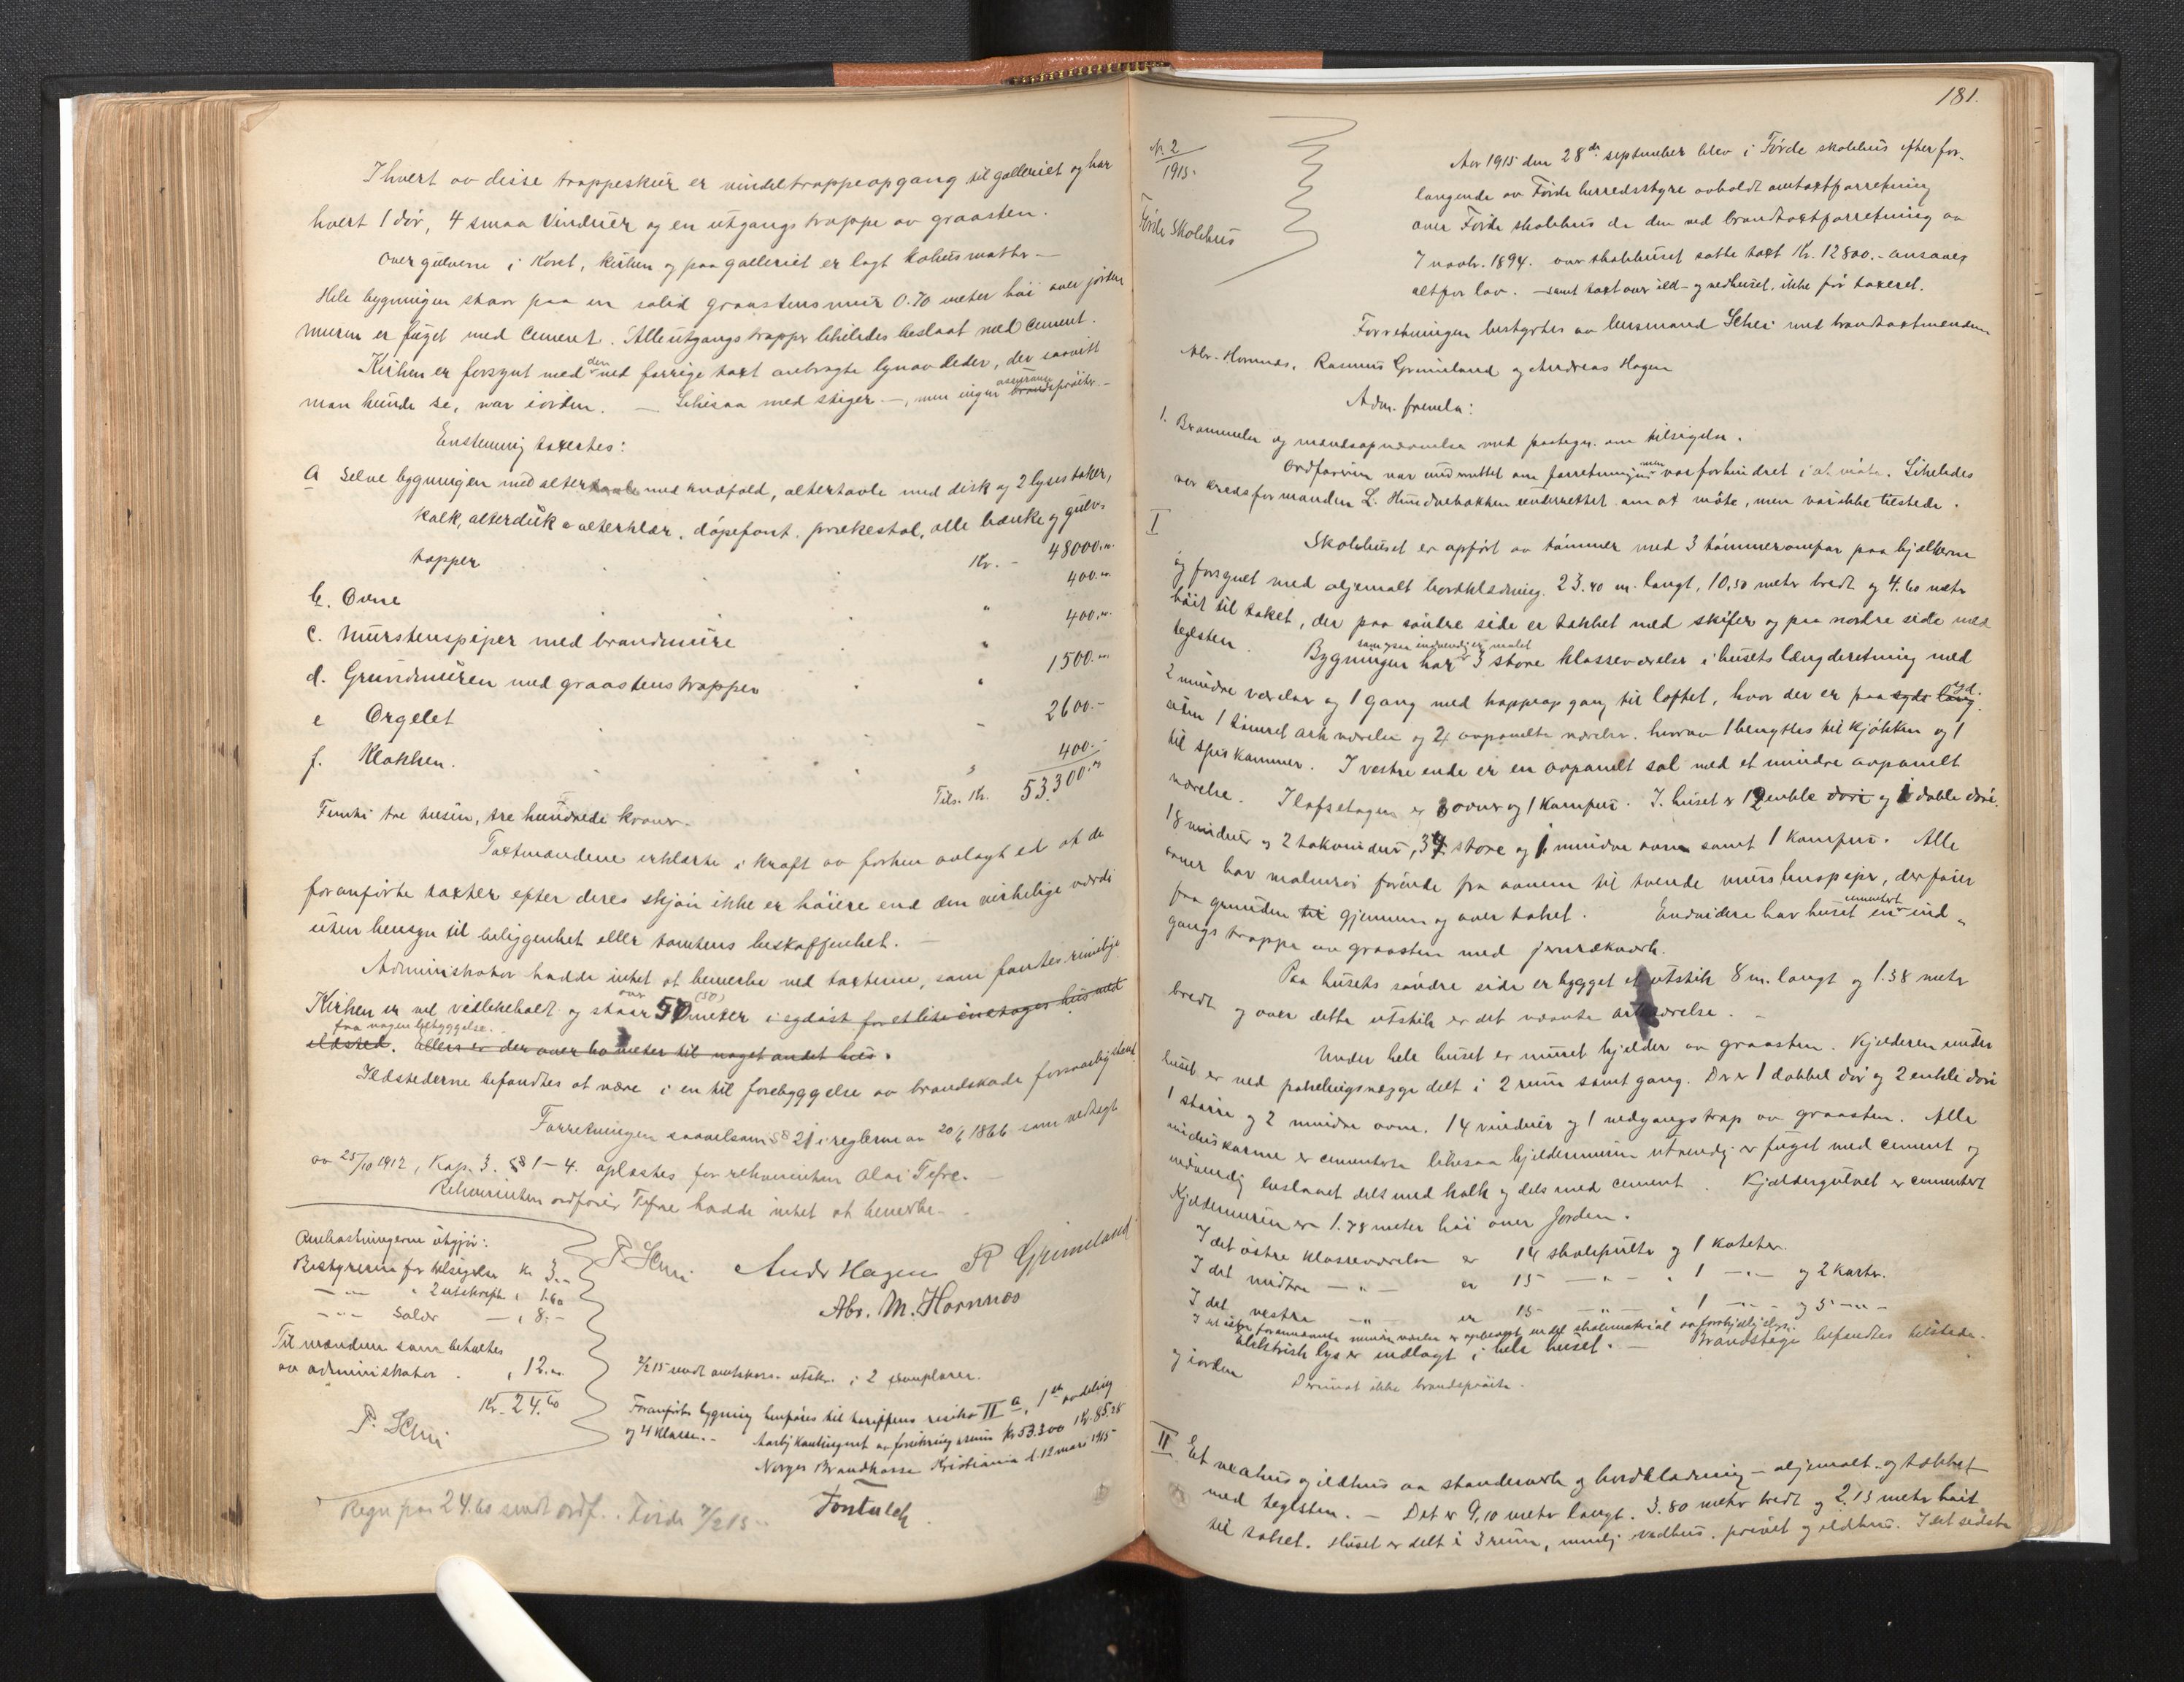 I hvert av disse trappeskur er vindeltrappeopgang til galleriet og har
hvert 1 dör, 4 smaa vinduer og en utgangs trappe av graasten.
Over gulvene i koret, kirken og paa galleriet er lagt kokusmatter –
Hele bygningen staar paa en solid graastensmur 0.70 meter höi over jorden
muren er fuget med cement. Alle utgangs trapper likeledes beslaat med cement.
Kirken er forsynt med den ved forrige taxt anbragte lynavleder, der saavitt
man kunde se, var iorden. – Likesaa med stiger. –, men ingen brandspröite. –
Enstemmig taxertes:
a Selve bygningen med alter med knæfald, altertavle med disk og 2 lysestaker,
kalk, alterduk & alterklær, döpefont, prækestol, alle bænke og gulv-
tepper Kr. - 48000.00
b. Ovne " 400.00
c. Murstenspiper med brandmure " 400.00
d. Grundmuren med graastenstrapper " 1500.00
e Orgelet " 2600.-
f. Klokken. " 400.-
Tils. Kr. 53.300.00
Femti tre tusin, tre hundrede kroner.
Taxtmændene erklærte i kraft av forhen avlagt ed at de
foranförte taxter efter deres skjön ikke er höiere end den virkelige værdi
uten hensyn til beliggenhet eller tomtens beskaffenhet. –
Administrator hadde intet at bemerke ved taxterne, som fandtes rimelige.
Kirken er vel vedlikeholdt og staar over 50 (50) meter i sydöst for et lite en etages hus med
ildsted. fra nogen bebyggelse. Ellers er der over meter til noget andet hus.
Ildstederne befandtes at være i en til forebyggelse av brandskade forsvarlig stand.
Forretningen saavelsom §§ 21 i reglerne av 20/6 1866 som vedtagt
av 25/10 1912, Kap. 3. §§ 1–4. oplæstes for rekvirenten Olai Tefre. –
Rekvirenten ordförer Tefre hadde intet at bemerke. –
Omkostningerne utgjör:
Bestyreren for tilsigelse Kr 3.-
– " – " 2 utskrifter " 1.60
– " – Salær – " 8.-
Til mændene som betaltes
av administrator " 12.00
Kr. 24.60
P. Schei
P. Schei Andr Hagen R Grimeland
Abr. M. Hornnes
2/2 15 sendt amtskass. utskr. i 2 exemplarer.
Foranförte bygning henföres til tariffens risiko II a, 1ste avdeling
og 4 klasse. – Aarlig kontingent av forsikringssum Kr 53300 Kr. 85.28
Norges Brandkasse Kristiania d. 12 mars 1915
Regn paa 24.60 sendt ordf. Förde 7/2 15.-
181.
N. 2
1915.
Förde Skolehus
Aar 1915 den 28de september blev i Förde skolehus efter for-
langende av Förde herredsstyre avholdt omtaxtforretning
over Förde skolehus da den ved brandtaxtforretning av
7 novbr. 1894. over skolehuset satte taxt Kr. 12800.- ansaaes
altfor lav. – samt taxt over ild- og vedhuset, ikke för taxeret.
Forretningen bestyrtes av lensmand Schei med brandtaxtmændene
Abr. Hornnes, Rasmus Grimeland og Andreas Hagen
Adm. fremla:
1. og mandsopnævnelse med paategn. om tilsigelse.
Ordföreren var underrettet om forretningen men var forhindret i at möte. Likeledes
var kredsformanden L. Hundvebakken underrettet om at möte, men var ikke tilstede.
I
Skolehuset er opfört av tömmer med 3 tömmeromfar paa bjelkerne
og forsynet med oljemalt bordklædning. 23.40 m. langt, 10,50 meter bredt og 4.60 meter
höit til taket, der paa söndre side er tækket med skifer og paa nordre side med
teglsten. Bygningen som ogsaa indvendig er malet har 3 store klasseværelser i husets længderetning med
2 mindre værelser og 1 gang med trappeopgang til loftet, hvor der er paa syd-
siden 1 tömret ark værelse og 2 avpanelte værelser, hvorav 1 benyttes til kjökken og 1
til spiskammer. I vestre ende er en avpanelt sal med et mindre avpanelt
værelse. I loftsetagen er 3 ovner og 1 komfur. I huset er 12 enkle döre og 1 doble döre.
18 vinduer og 2 takvinduer, 3 store og 1 mindre ovne samt 1 komfur. Alle
ovner har malmrör förende fra ovnene til tvende murstenspiper, der förer
fra grunden til gjennem og over taket. Endvidere har huset en cementert ind-
gangs trappe av graasten med jernrækværk.
Paa husets söndre side er bygget et utstik 8 m. langt og 1.38 meter
bredt og over dette utstik er det nævnte arkværelse. –
Under hele huset er muret kjelder av graasten. Kjelderen under
huset er ved panelingsvægge delt i 2 rum samt gang. Der er 1 dobbel dör og 2 enkle döre
1 större og 2 mindre ovne. 14 vinduer og 1 nedgangstrap av graasten. Alle
vindus karme er cementerte likesaa kjeldermuren utvendig er fuget med cement og
indvendig beslaaet dels med kalk og dels med cement. Kjældergulvet er cementert
Kjeldermuren er 1.78 meter höi over Jorden.
I det östre klasseværelse er 14 skolepulte og 1 kateter.
I det midtre – " – er 15 – " – " 1 – " – og 2 karter.
I det vestre – " – er 15 – " – " 1 – " – og 5 – " –
I et östre forannævnte mindre værelse er opbevart endel skolemateriel av forskjellig slags.
elektrisk lys er indlagt i hele huset. – Brandstige befandtes tilstede
og iorden Derimot ikke brandspröite.
II Et vedhus og ildhus av standerverk og bordklædning – oljemalt og tækket
med teglsten. – Det er 9,10 meter langt. 3.80 meter bredt og 2.13 meter höit
til taket. Huset er delt i 3 rum, nemlig vedhus, privet og ildhus. I det sidste